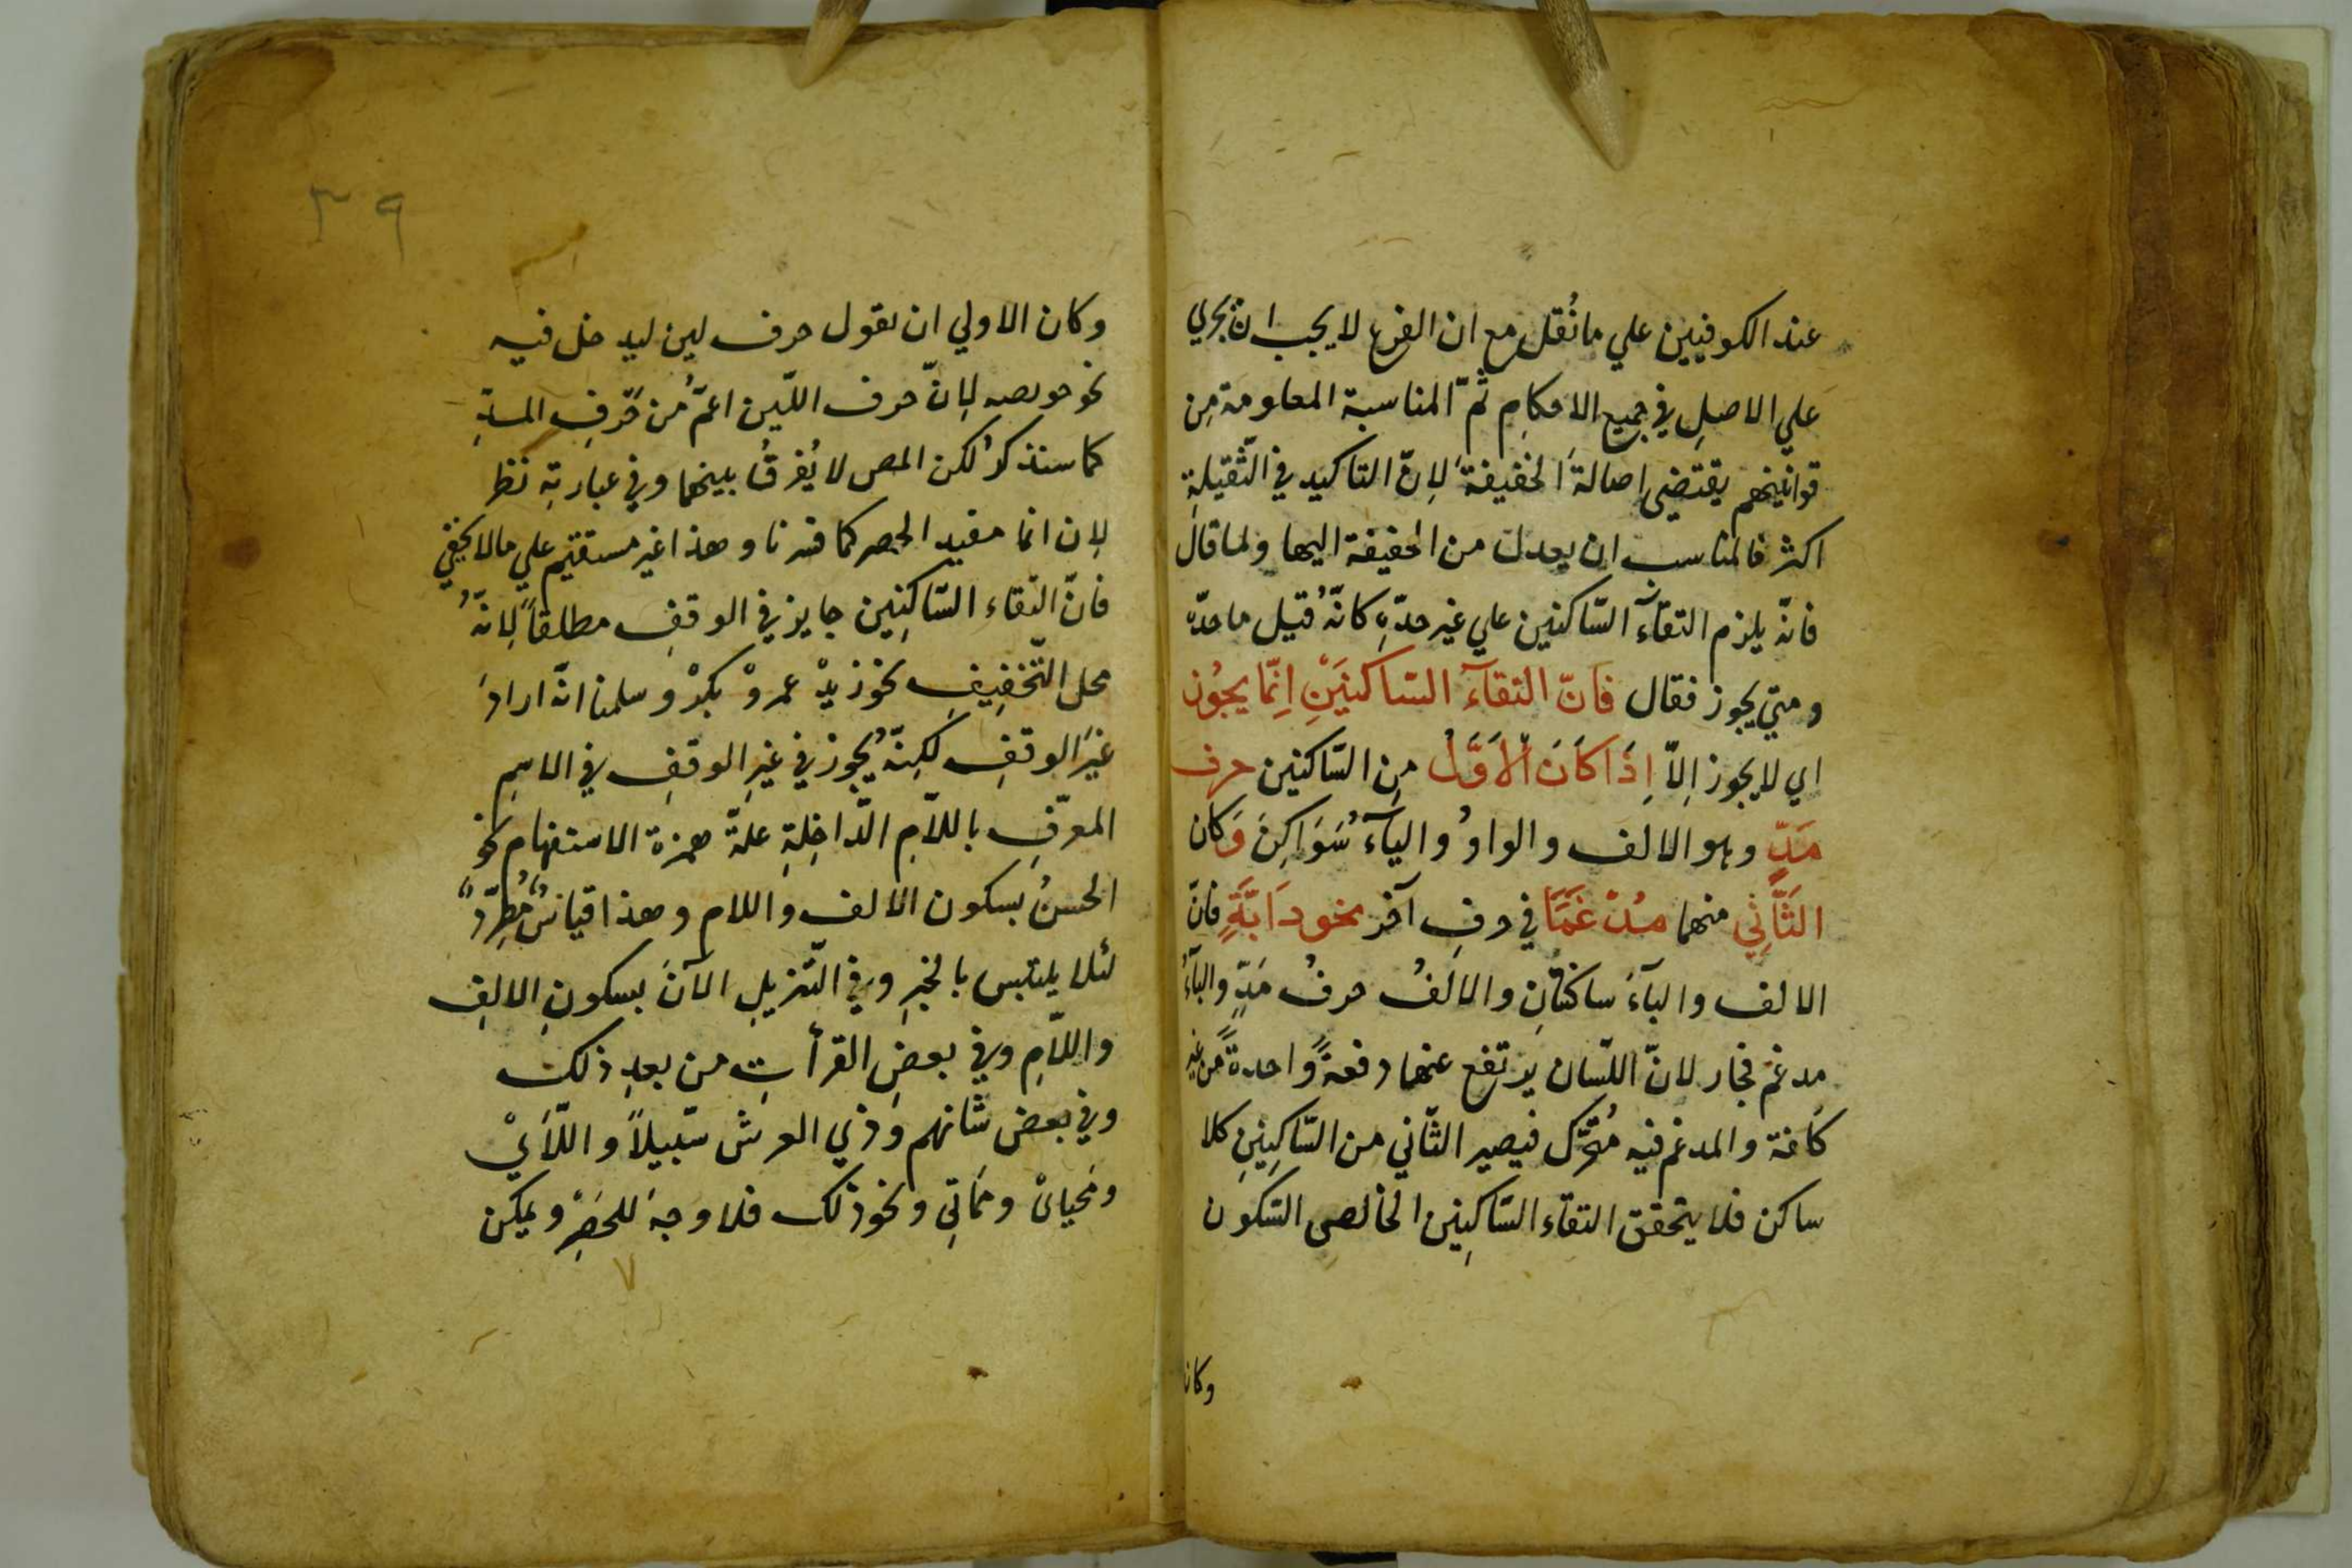 عند الكوفيين علي ما نُقل مع ان الفرع لا يجب ان يجري
علي الاصلِ في جميع الاحكامِ ثمّ المناسبة المعلومة مِن
قوانينهم يقتضي اصالةَ الخفيفة لِانّ التاكيد في الثّقيلةِ
اكثر فالمناسب ان يعدل من الخفيفة اليها ولما قال
فانّه يلزم التقآءُ السّاكنين علي غير حدّهِ كانّهُ قيل ما حدّه
ومتي يجوز فقال فَانّ التقآءَ السّاكنَيْنِ اِنّما يجُوز
اي لا يجوز اِلاّ اِذَا كَانَ الْاَوَّلُ مِن السّاكنين حرف
مَدٍّ وهو الالف والواوُ والياءُ سَوَاكِنَ وَكان
الثَّانِي منهما مُدْغَمًا في حرفٍ آخر نحو دَابَّةٍ فانّ
الالف والباءَ ساكنتانِ والالفُ حرفُ مَدٍّ والباءُ
مدغم فجاز لانّ اللّسان يرتفع عنهما دفعةً واحدةً من غير
كلفة والمدغم فيه مُتحَرّك فيصير الثّاني من السّاكِنَينِ كلا
ساكن فلا يتحقق التقاء السّاكِنين الخالصِي السّكون
وكان
٣٩
وكان الاولي ان يقول حرف لين ليدخل فيه
نحو خويصه لِانّ حرف اللّين اعمُّ من حَرفِ المدّةِ
كما سنذكرُ لكن المص لا يُفرقُ بينهما وفي عبارتِه نظر
لِان انما مفيد الحصر كما فسرنا وهذا غير مستقيم علي مالا يخفي
فانّ التقاء السّاكِنِين جايز في الوقفِ مطلقاً لِانّهُ
محل التّخفِيفِ نحو زيدْ عمروْ بكرْ و سلمنا انّه ارادَ
غيرَ الوقفِ لكِنّهُ يجوز في غيرِ الوقفِ في الاسِمِ
المعرّفِ باللاّمِ الدّاخِلةِ عليه همزة الاستفهامِ نحو
الحسنُ بسكون الالف واللام وهذا قياسٌ مُطرِّدٌ
لئلا يلتبس بالخبرِ وفي التّنزيلِ الآنَ بسكونِ الالِفِ
واللاّمِ وفي بعضِ القرأتِ من بعدِ ذلك
وفي بعض شانهم وذي العرش سّبيلاً و اللّاَيْ
ومحيايْ ومماتِي ونحو ذلك فلا وجهَ للحصَرِ ويمكن